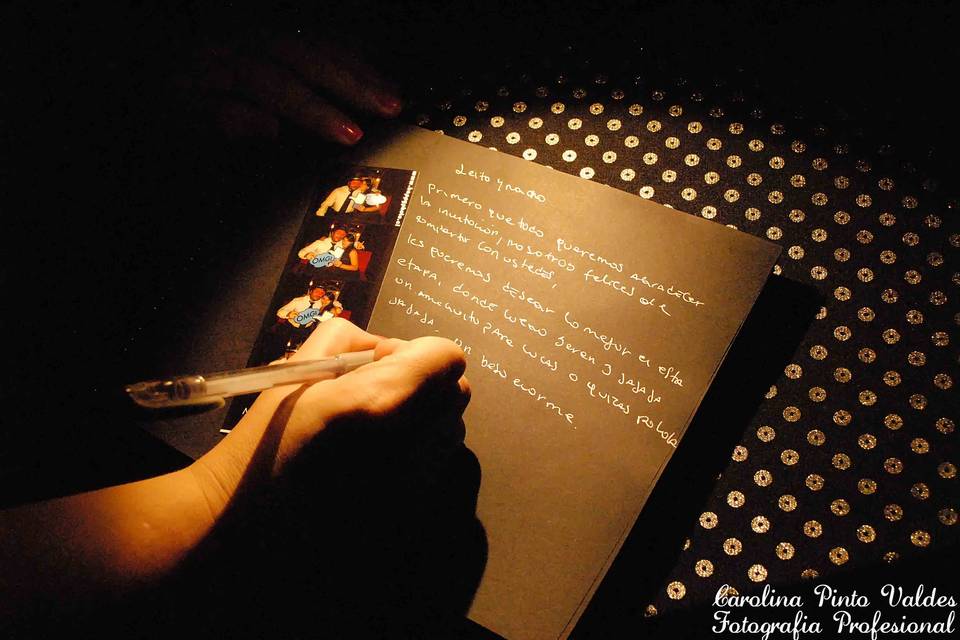 Leito y nacho
Primero que todo queremos agradecer
la invitación, nosotros felices de
compartir con ustedes,
les queremos desear lo mejor en esta
etapa, donde luego seran 3 jajaja
un amiguito para Lucas o quizas polola
jajaja. un beso enorme.
OMG!
OMG!
Carolina Pinto Valdes
Fotografia Profesional